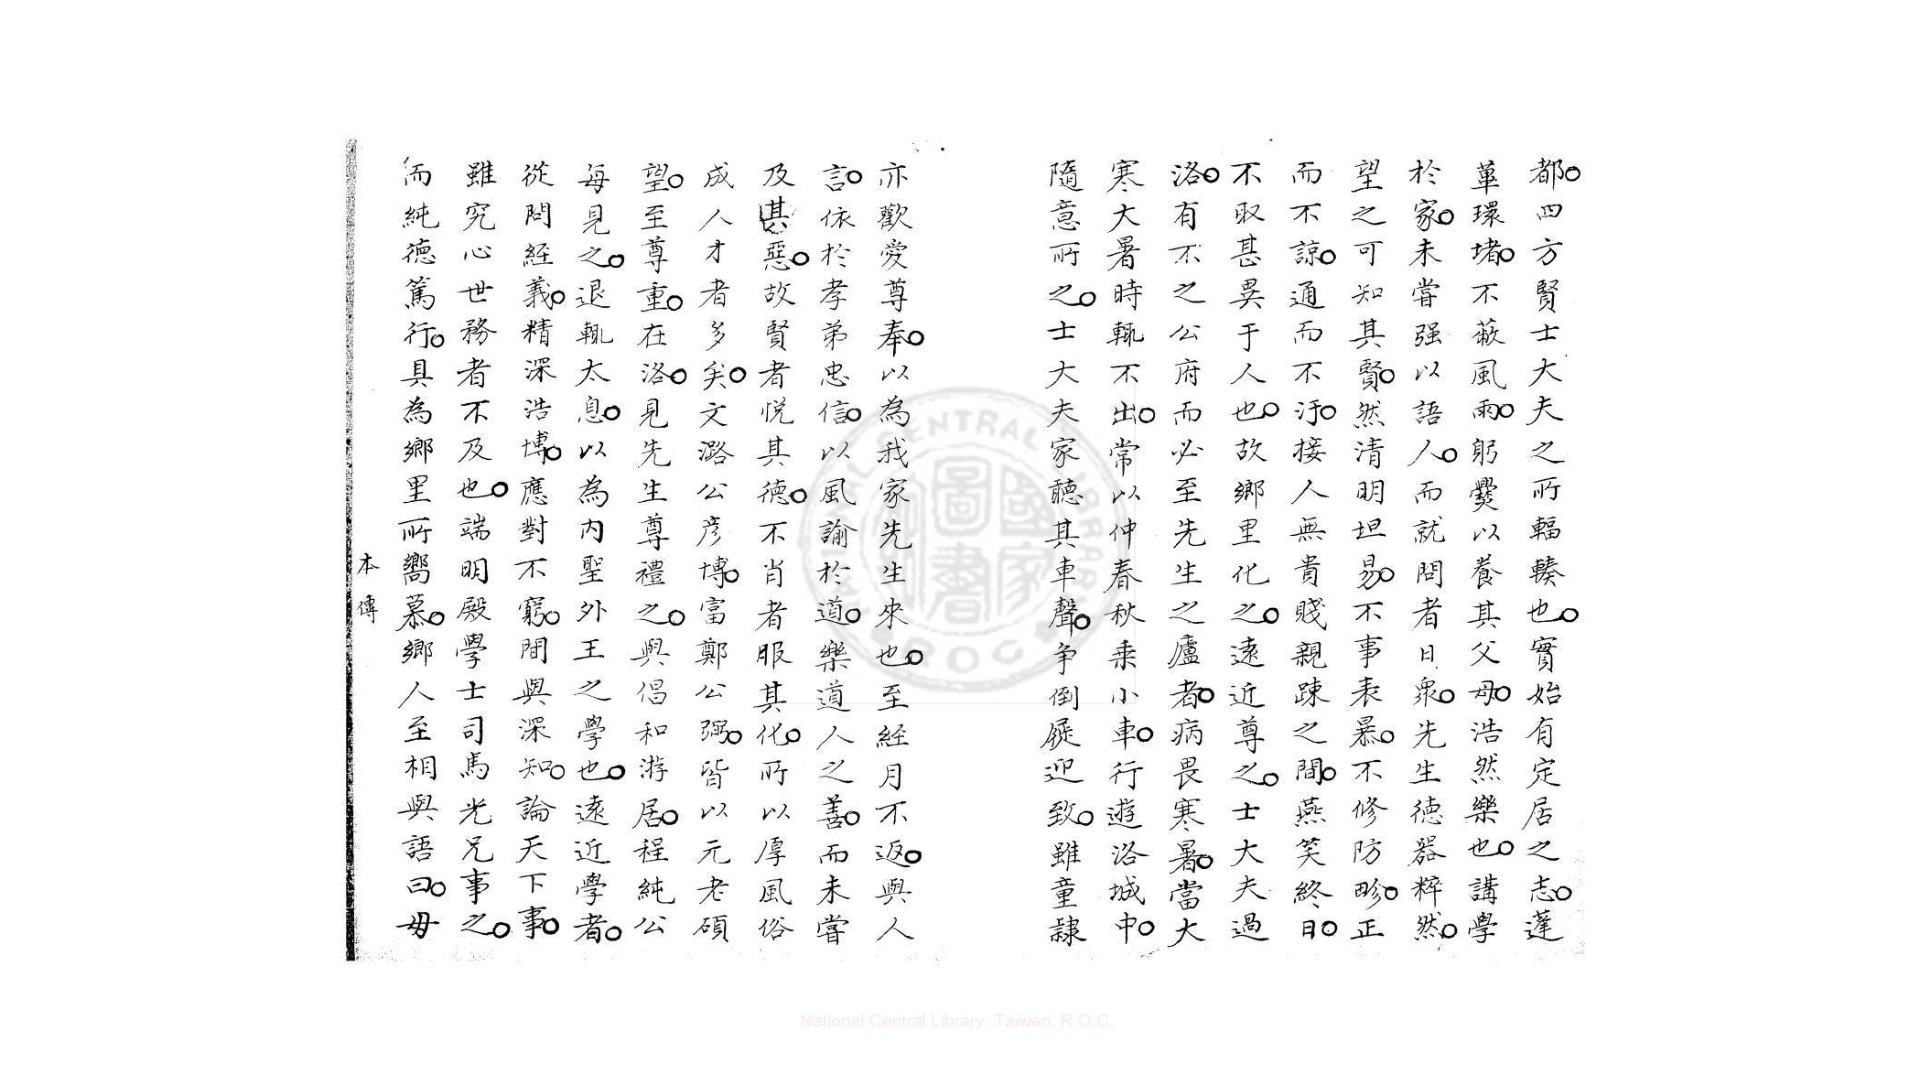 都。四方賢士大夫之所輻輳也。實始有定居之志。蓬
蓽環堵。不蔽風雨。躬爨以養其父母。浩然樂也。講學
於家。未嘗强以語人。而就問者日衆。先生德器粹然。
望之可知其賢。然清明坦易。不事表暴。不修防畛。正
而不諒。通而不汙。接人無貴賤親踈之間。燕笑終日。
不取甚異于人也。故鄉里化之。遠近尊之。士大夫過
洛。有不之公府而必至先生之廬者。病畏寒暑。當大
寒大暑時輒不出。常以仲春秋乘小車。行遊洛城中。
隨意所之。士大夫家聽其車聲。争倒屣迎致。雖童隷
亦歡愛尊奉。以為我家先生來也。至經月不返。與人
言。依於孝弟忠信。以風諭於道。樂道人之善。而未嘗
及其惡。故賢者悅其德。不肖者服其化。所以厚風俗
成人才者多矣。文潞公彦博。富鄭公弼。皆以元老碩
望。至尊重。在洛。見先生尊禮之。與倡和游居。程純公
每見之。退輒太息。以為内聖外王之學也。遠近學者。
從問經義。精深浩博。應對不窮。間與深知。論天下事。
雖究心世務者不及也。端明殿學士司馬光兄事之。
而純德篤行。具為鄉里所嚮慕。鄉人至相與語曰。毋
本傳
National Central Library, Taiwan, R.O.C.
NATIONAL CENTRAL LIBRARY
R.O.C
國家圖書館